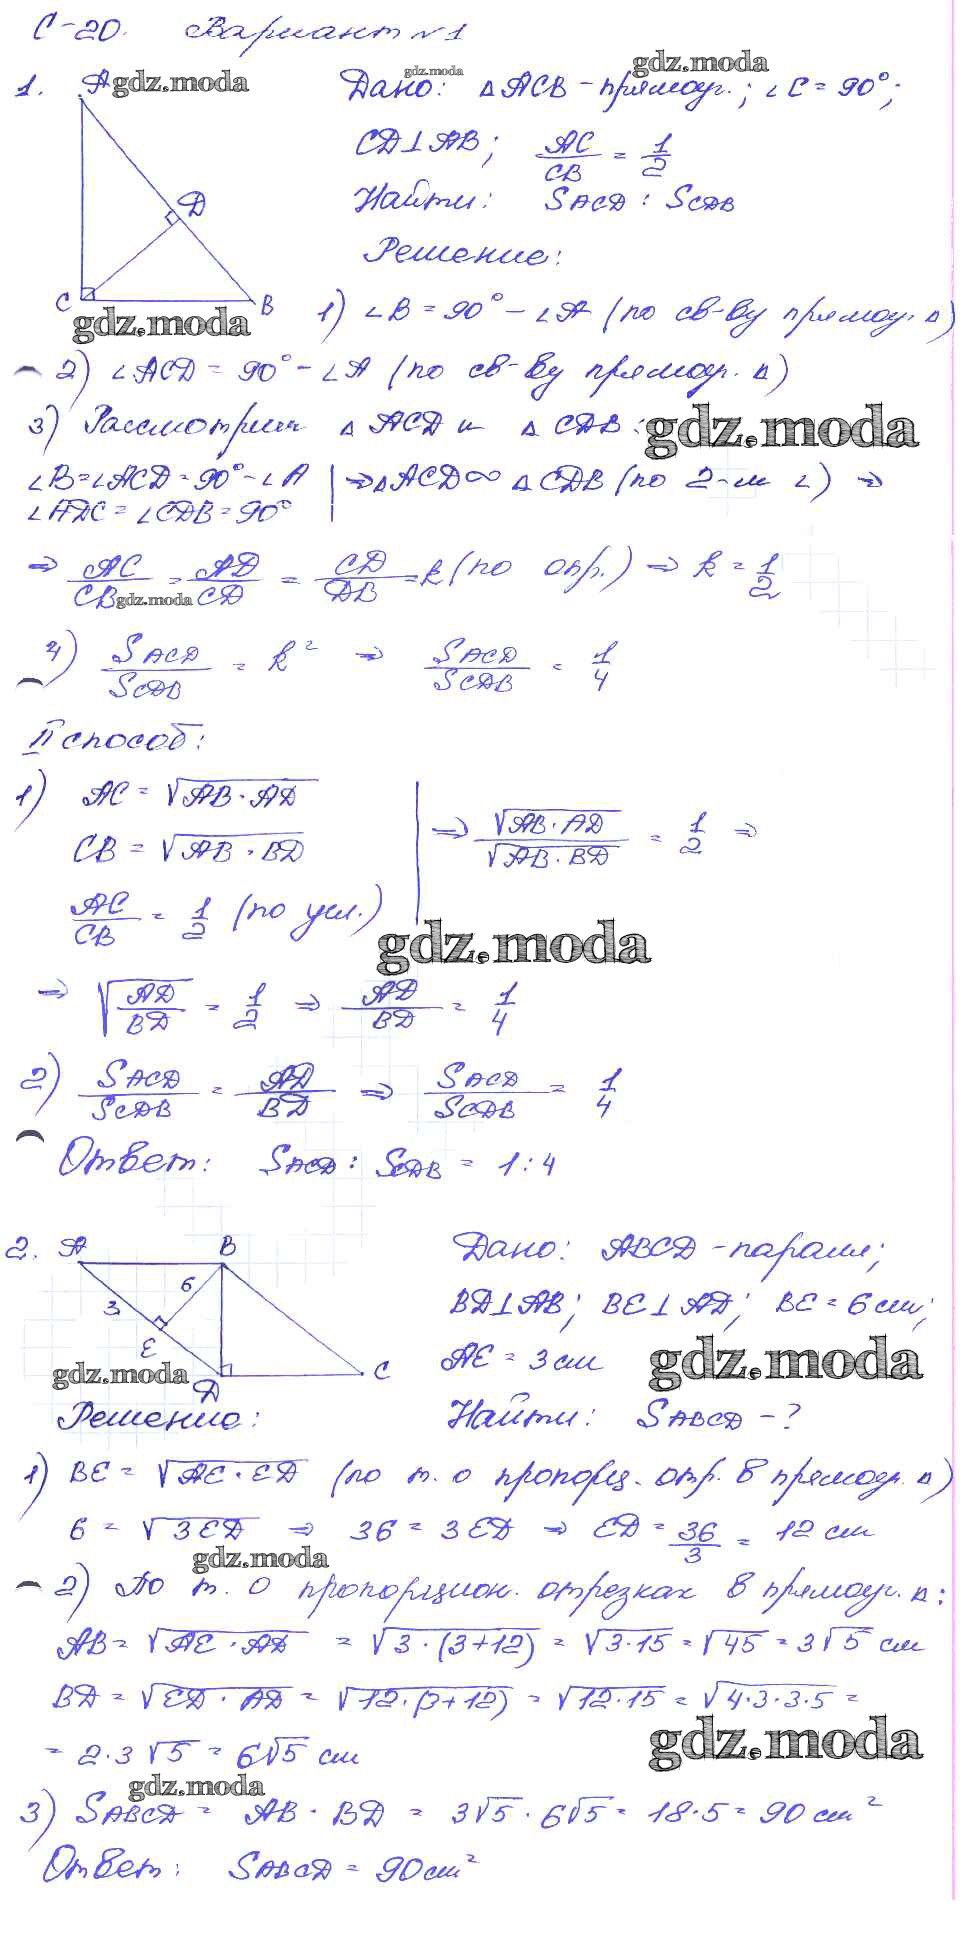 С-20. Вариант №1
1. A gdz.moda gdz.moda gdz.moda
Дано: △ACB - прямоуг.; ∠C = 90°;
CD⊥AB; AC/CB = 1/2
Найти: S ACD : S CDB
D
Решение:
C B
gdz.moda
1) ∠B = 90° - ∠A (по св-ву прямоуг. △)
2) ∠ACD = 90° - ∠A (по св-ву прямоуг. △)
3) Рассмотрим △ ACD и △ CDB: gdz.moda
∠B = ∠ACD = 90° - ∠A | ⇒ △ACD ∞ △CDB (по 2-м ∠) ⇒
∠ADC = ∠CDB = 90°
⇒ AC/CB = AD/CD = CD/DB = k (по опр.) ⇒ k = 1/2
gdz.moda
4) S ACD / S CDB = k² ⇒ S ACD / S CDB = 1/4
II способ:
1) AC = √AB·AD
CB = √AB·BD | ⇒ √AB·AD / √AB·BD = 1/2 ⇒
AC/CB = 1/2 (по усл.)
gdz.moda
⇒ √AD/BD = 1/2 ⇒ AD/BD = 1/4
2) S ACD / S CDB = AD/BD ⇒ S ACD / S CDB = 1/4
Ответ: S ACD : S CDB = 1:4
2. A B
Дано: ABCD - паралл;
3 6 E D C
BD⊥AB; BE⊥AD; BE = 6 см;
AE = 3 см gdz.moda
gdz.moda
Решение: Найти: S ABCD - ?
1) BE = √AE·ED (по т. о пропорц. отр. в прямоуг. △)
6 = √3ED ⇒ 36 = 3ED ⇒ ED = 36/3 = 12 см
gdz.moda
2) По т. о пропорцион. отрезках в прямоуг. △:
AB = √AE·AD = √3·(3+12) = √3·15 = √45 = 3√5 см
BD = √ED·AD = √12·(3+12) = √12·15 = √4·3·3·5 =
= 2·3√5 = 6√5 см gdz.moda
gdz.moda
3) S ABCD = AB·BD = 3√5·6√5 = 18·5 = 90 см²
Ответ: S ABCD = 90 см²